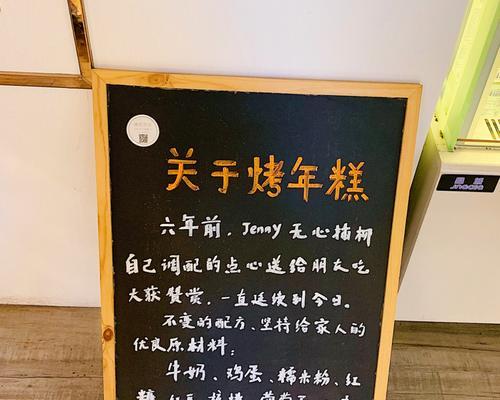 关于烤年糕
六年前，Jenny 无心插柳
自己调配的点心送给朋友吃
大获赞赏，一直延续到今日。
不变的配方、坚持给家人的
优良原材料：
牛奶、鸡蛋、糯米粉、红
糖